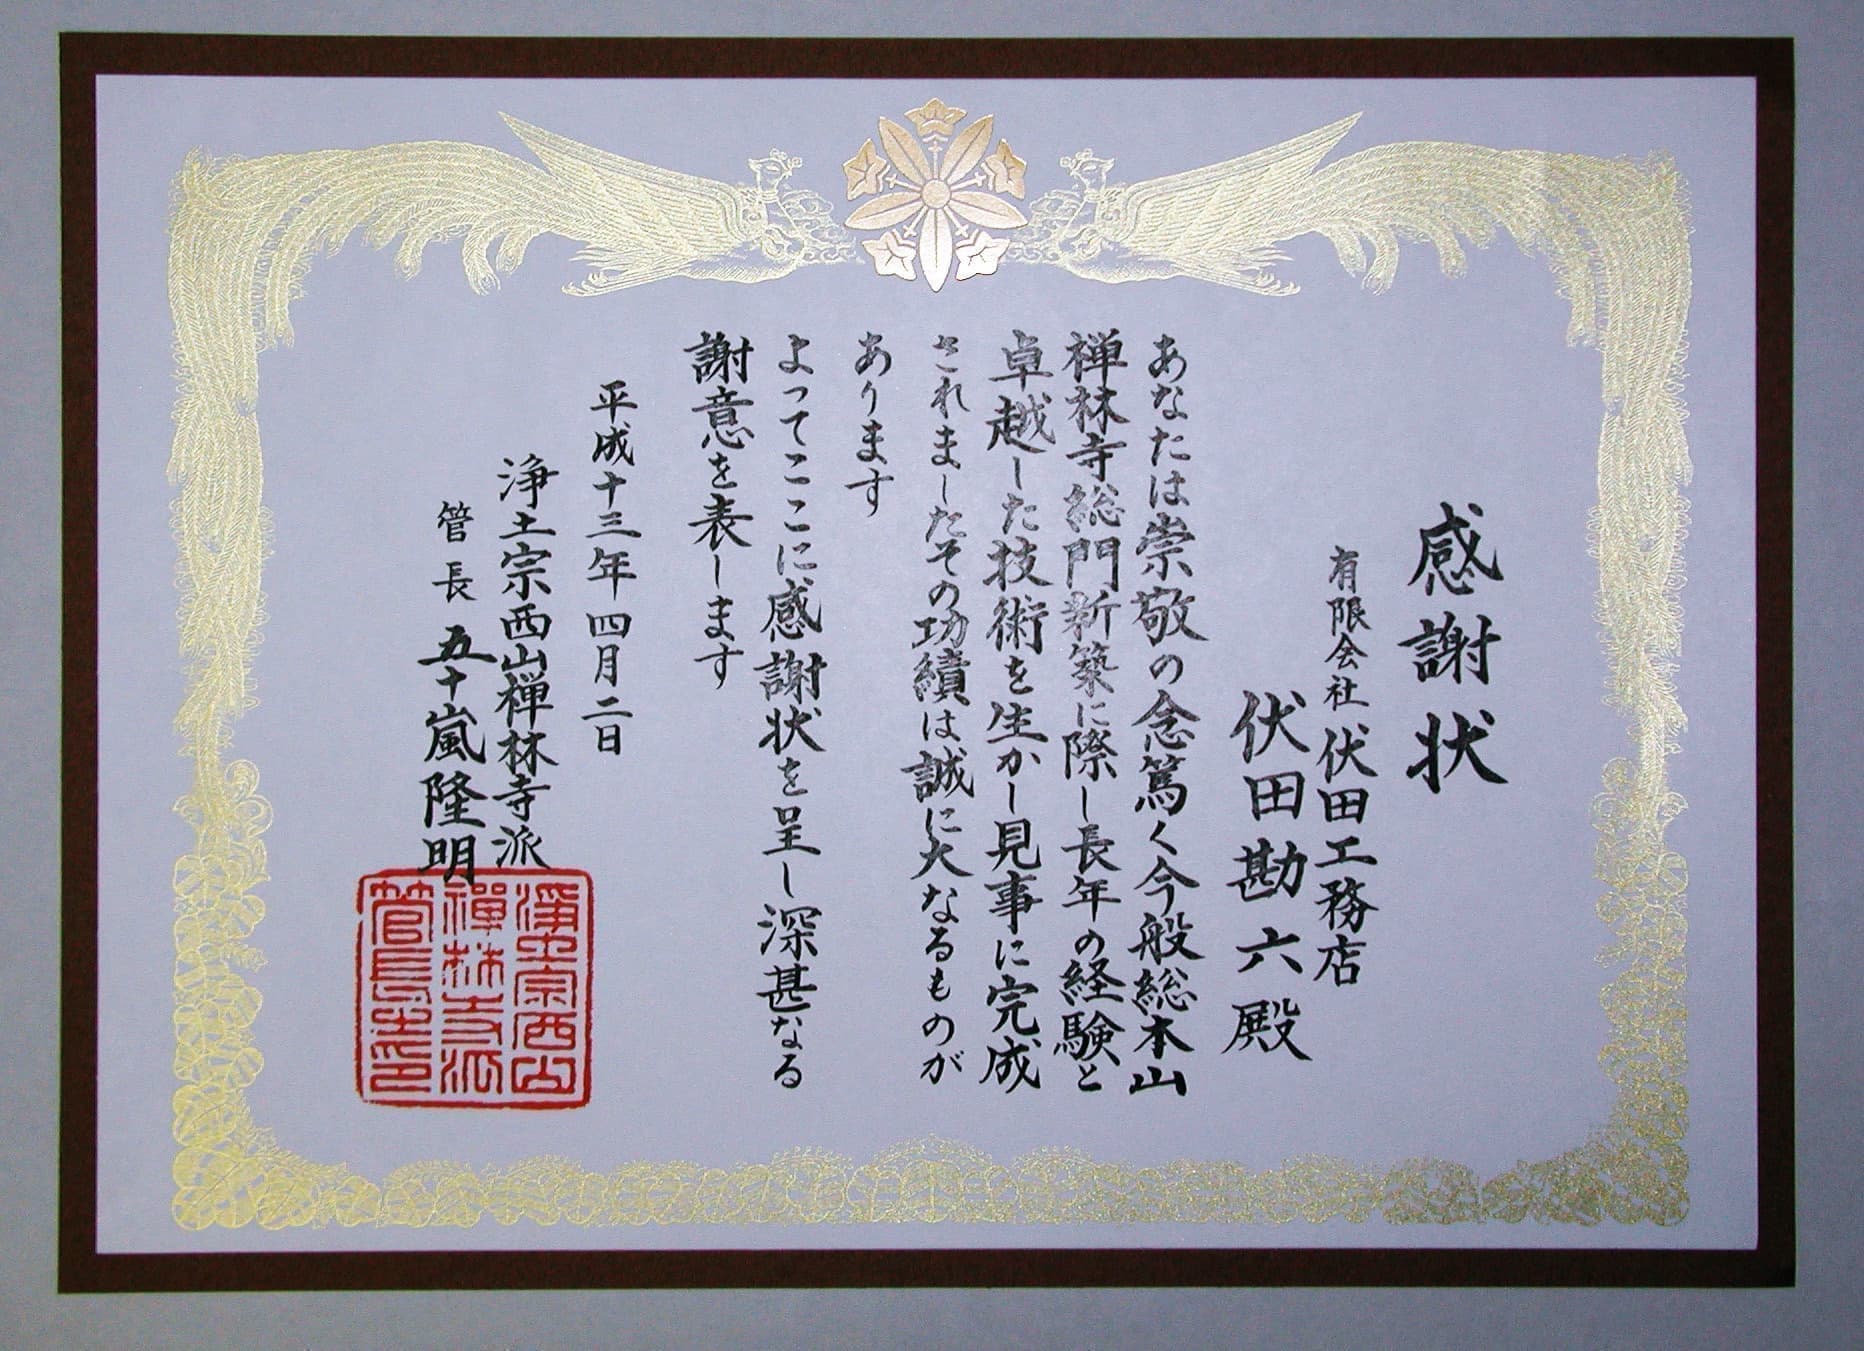 感謝状
有限会社伏田工務店
伏田勘六殿
あなたは崇敬の念篤く今般総本山
禅林寺総門新築に際し長年の経験と
卓越した技術を生かし見事に完成
されましたその功績は誠に大なるものが
あります
よってここに感謝状を呈し深甚なる
謝意を表します
平成十三年四月二日
浄土宗西山禅林寺派
管長 五十嵐隆明
淨土宗西山
禪林寺派
管長之印